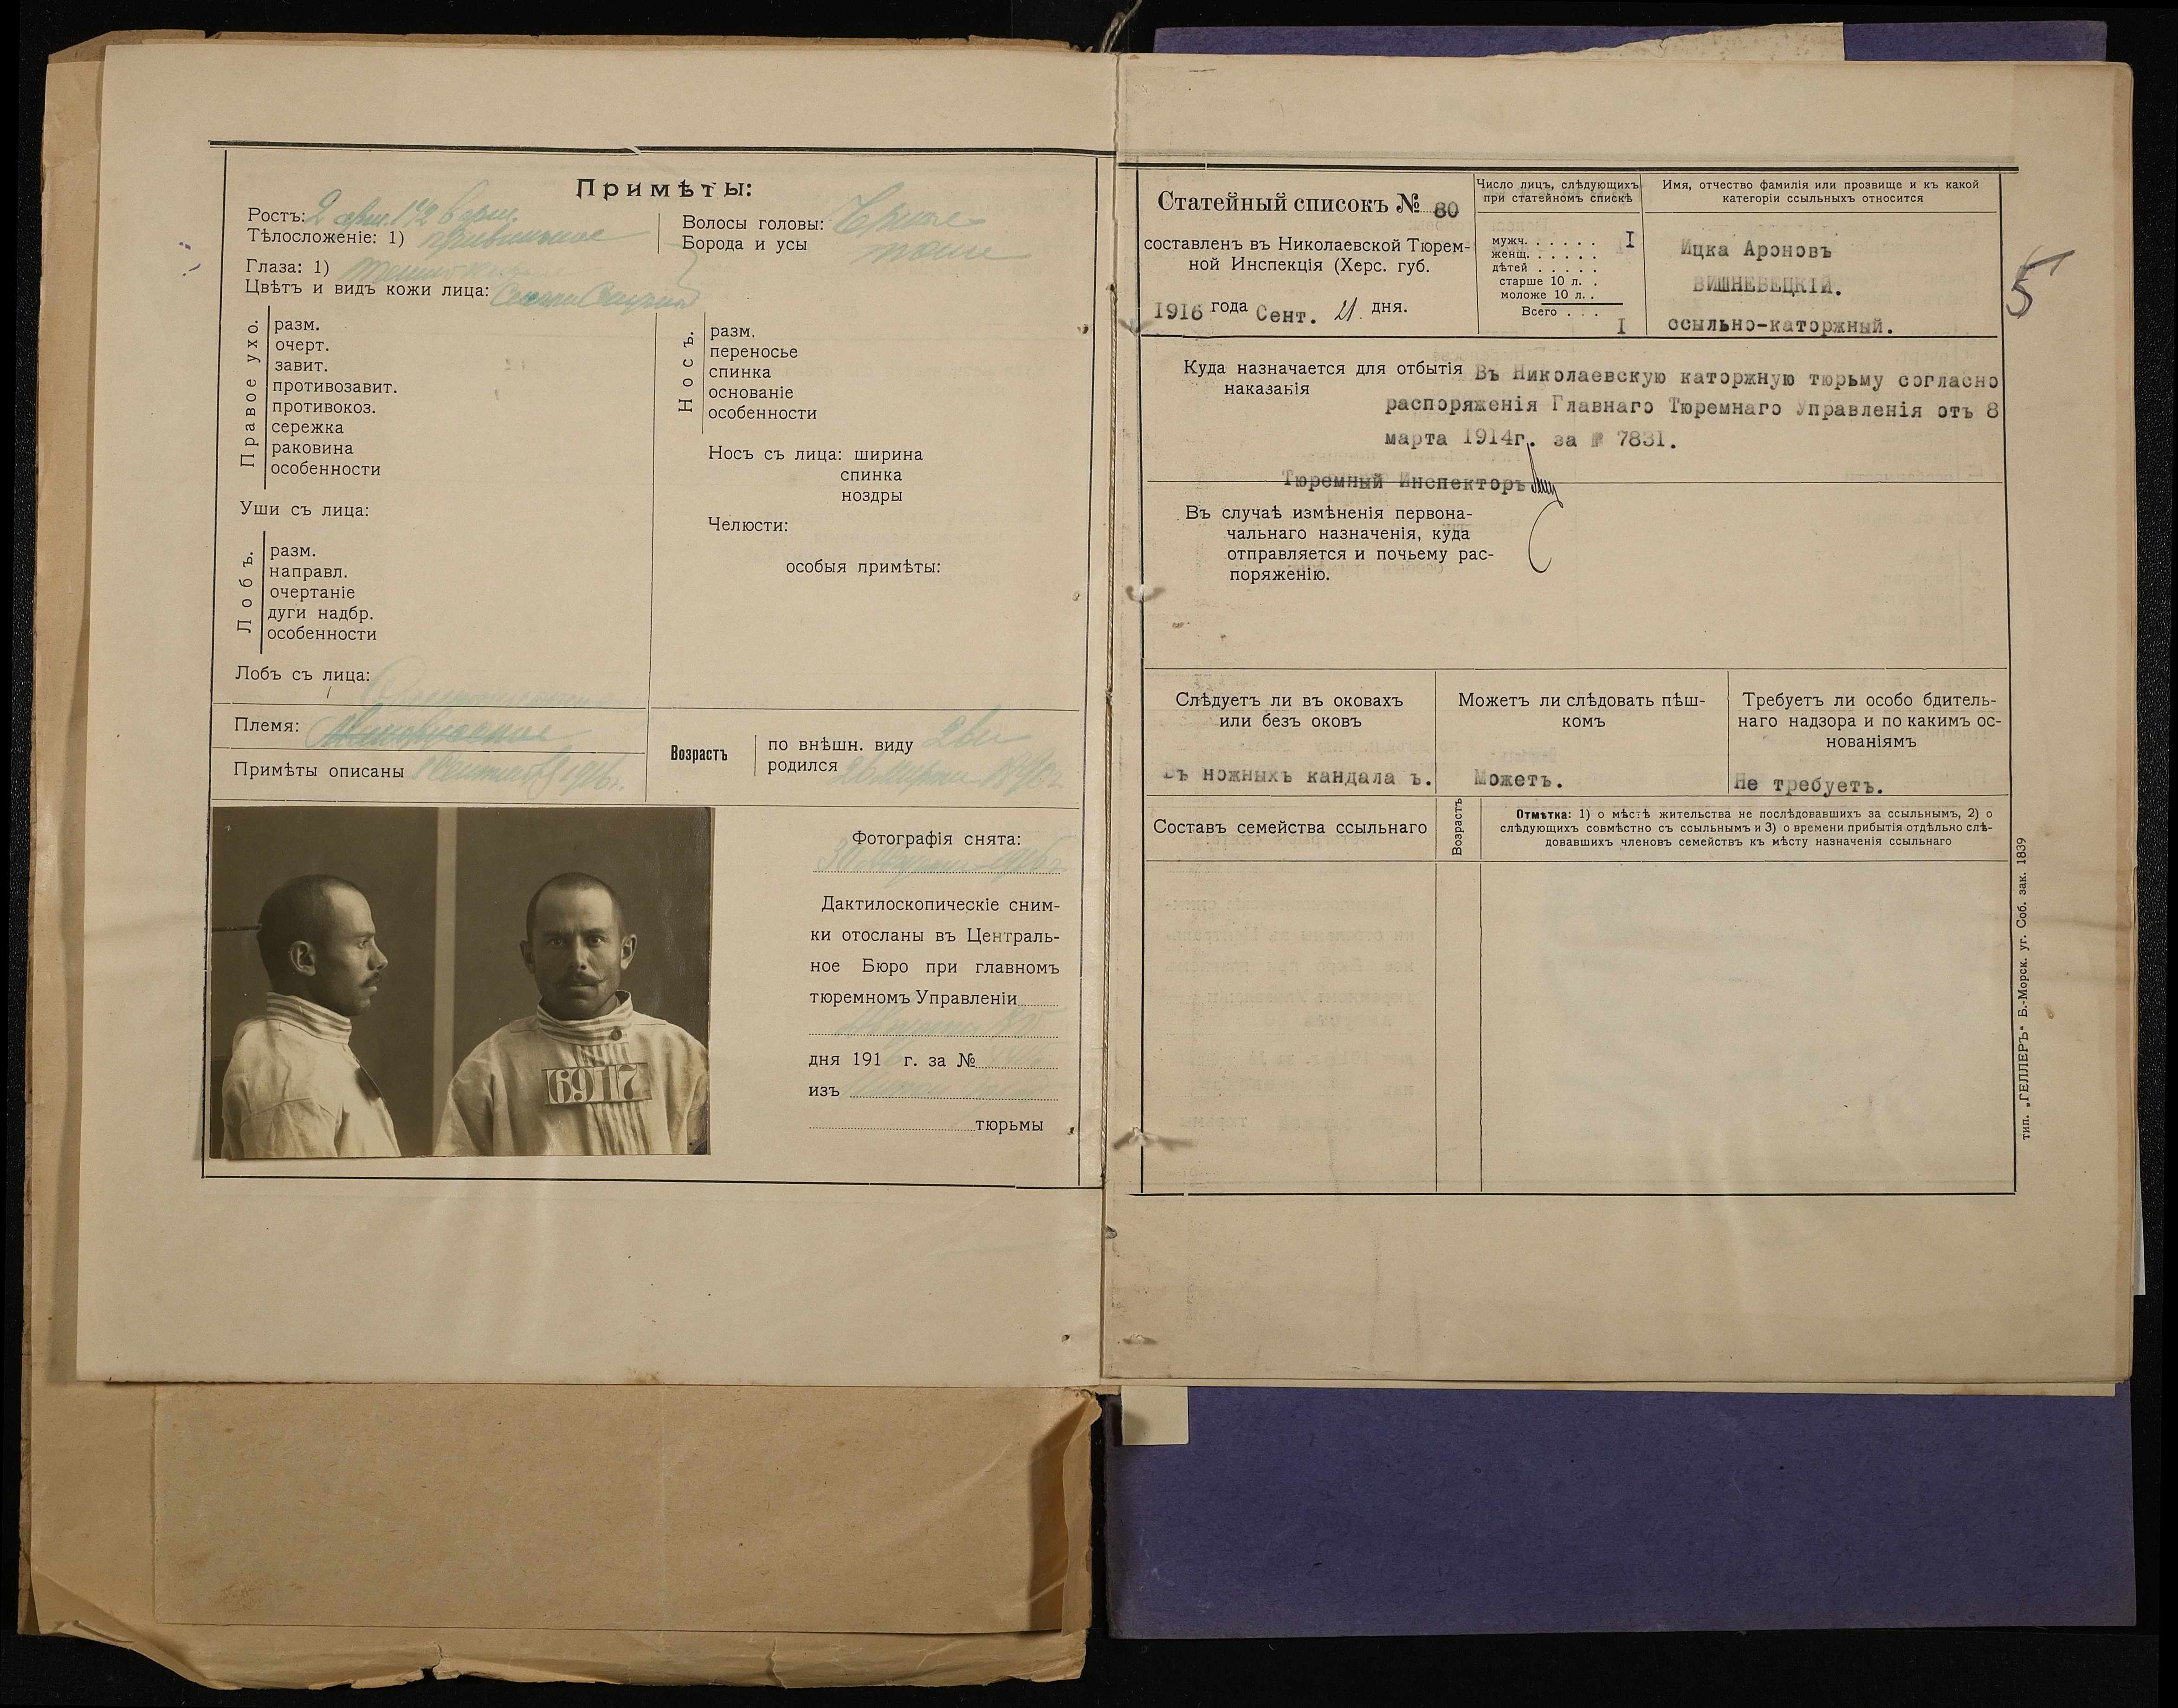 Примѣты:
Ростъ: 2 арш. 1 1/2 верш.
Тѣлосложеніе: 1) правильное
Волосы головы: Черные
Борода и усы тоже
Глаза: 1)
Цвѣтъ и видъ кожи лица:
Правое ухо.
разм.
очерт.
завит.
противозавит.
противокоз.
сережка
раковина
особенности
Носъ.
разм.
переносье
спинка
основаніе
особенности
Носъ съ лица: ширина
спинка
ноздри
Уши съ лица:
Челюсти:
особыя примѣты:
Лобъ.
разм.
направл.
очертаніе
дуги надбр.
особенности
Лобъ съ лица:
Племя:
Примѣты описаны 1916г.
Возрастъ
по внѣшн. виду
родился 26 марта
Фотографія снята:
Дактилоскопическіе сним-
ки отосланы въ Централь-
ное Бюро при главномъ
тюремномъ Управленіи
дня 191 г. за №
изъ
тюрьмы
69117
Статейный списокъ № 80
составленъ въ Николаевской Тюрем-
ной Инспекція (Херс. губ.
1916 года Сент. 21. дня.
Число лицъ, слѣдующихъ
при статейномъ спискѣ
мужч. . . . . . I
женщ. . . . . .
дѣтей . . . . .
старше 10 л. .
моложе 10 л. .
Всего . . . I
Имя, отчество фамилія или прозвище и къ какой
категоріи ссыльныхъ относится
Ицка Ароновъ
ВИШНЕВЕЦКІЙ.
ссыльно-каторжный.
5
Куда назначается для отбытія
наказанія
Въ Николаевскую каторжную тюрьму согласно
распоряженія Главнаго Тюремнаго Управленія отъ 8
марта 1914г. за № 7831.
Тюремный Инспекторъ
Въ случаѣ измѣненія первона-
чальнаго назначенія, куда
отправляется и почьему рас-
поряженію.
Слѣдуетъ ли въ оковахъ
или безъ оковъ
Въ ножныхъ кандала ъ.
Можетъ ли слѣдовать пѣш-
комъ
Можетъ.
Требуетъ ли особо бдитель-
наго надзора и по какимъ ос-
нованіямъ
Не требуетъ.
Составъ семейства ссыльнаго
Возрастъ
Отмѣтка: 1) о мѣстѣ жительства не послѣдовавшихъ за ссыльнымъ, 2) о
слѣдующихъ совмѣстно съ ссыльнымъ и 3) о времени прибытія отдѣльно слѣ-
довавшихъ членовъ семействъ къ мѣсту назначенія ссыльнаго
тип. „ГЕЛЛЕРЪ" Б.-Морск. уг. Соб. зак. 1839